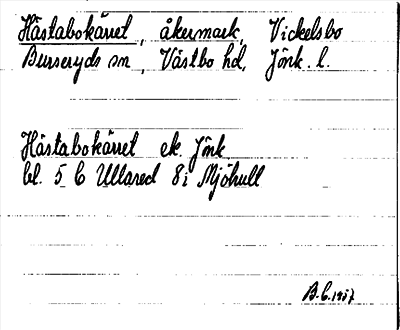 Hästabokärret, åkermark, Vickelsbo
Burseryds sn, Västbo hd, Jönk. l.
Hästabokärret ek. Jönk
bl. 5 C Ullared 8i Mjöhull
B.C. 1957